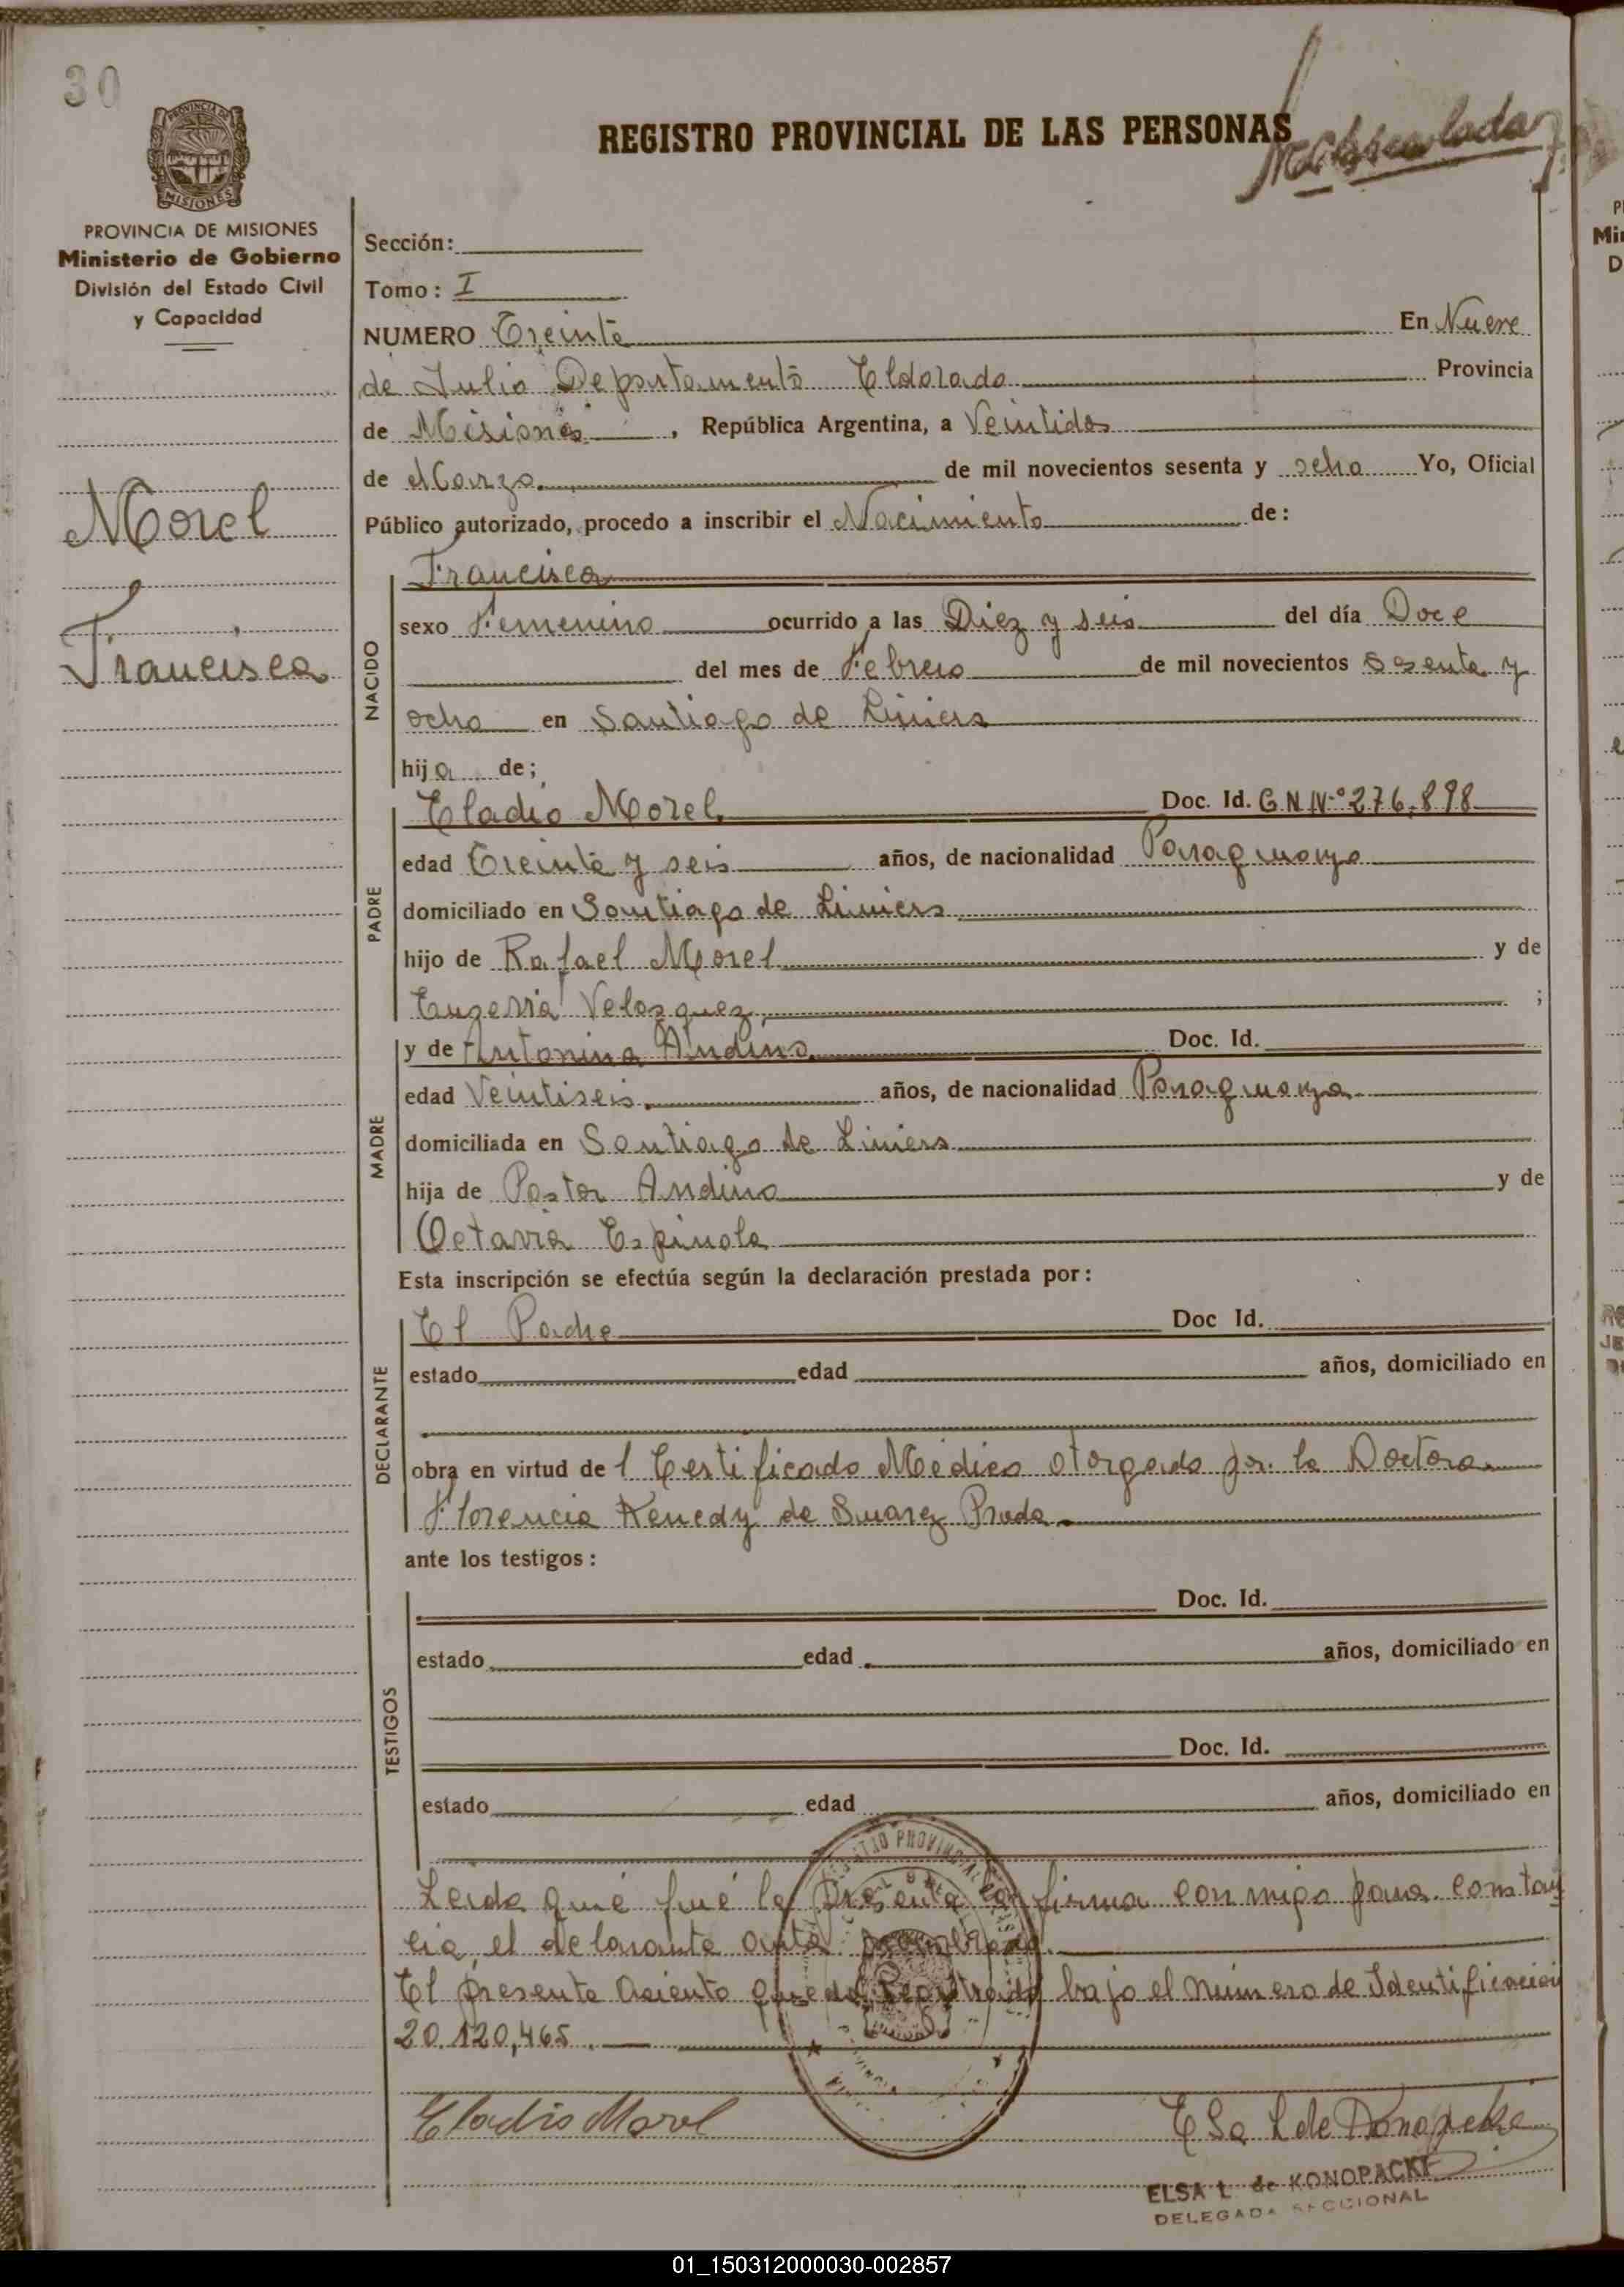 30
REGISTRO PROVINCIAL DE LAS PERSONAS
PROVINCIA DE
MISIONES
PROVINCIA DE MISIONES
Ministerio de Gobierno
División del Estado Civil
y Capacidad
Morel
Francisca
Sección:
Tomo: I
NUMERO Treinta En Nueve
de Julio Departamento Eldorado Provincia
de Misiones, República Argentina, a Veintidos
de Marzo de mil novecientos sesenta y ocho Yo, Oficial
Público autorizado, procedo a inscribir el Nacimiento de:
NACIDO
Francisca
sexo Femenino ocurrido a las Diez y seis del día Doce
del mes de Febrero de mil novecientos Sesenta y
ocho en Santiago de Liniers
hija de;
PADRE
Eladio Morel Doc. Id. G.N Nº 276,898
edad Treinta y seis años, de nacionalidad Paraguaya
domiciliado en Santiago de Liniers
hijo de Rafael Morel y de
Eugenia Velazquez ;
MADRE
y de Antonina Andino Doc. Id.
edad Veintiseis años, de nacionalidad Paraguaya
domiciliada en Santiago de Liniers
hija de Pastor Andino y de
Octavia Espinola
Esta inscripción se efectúa según la declaración prestada por:
DECLARANTE
El Padre Doc Id.
estado edad años, domiciliado en
obra en virtud del Certificado Médico otorgado por la Doctora
Florencia Kenedy de Suarez Prada
ante los testigos:
TESTIGOS
Doc. Id.
estado edad años, domiciliado en
Doc. Id.
estado edad años, domiciliado en
Leida que fué la presente la firma conmigo para constan
cia el declarante ante
El presente Asiento queda Registrado bajo el número de Identificacion
20.120,465.
Eladio Morel Elsa L de Konopacki
ELSA L. de KONOPACKI
DELEGADA SECCIONAL
01_150312000030-002857